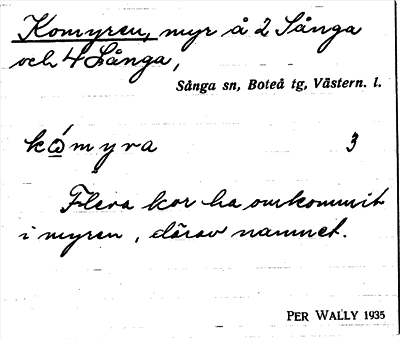 Komyren, myr å 2 Sånga
och 4 Sånga,
Sånga sn, Boteå tg, Västern. l.
kώmyra 3
Flera kor ha omkommit
i myren, därav namnet.
PER WALLY 1935